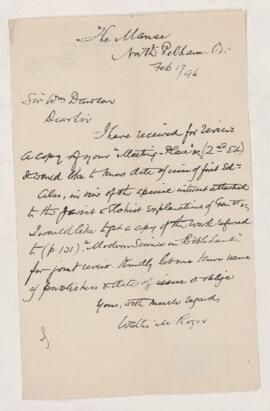 The Manse
North Pelham Ont
Feb 17 96
Sir Wm Dawson
Dear Sir
I have received for review
a copy of your "Meeting-Place &c (2nd Ed)
& would like to know date of issue of first Ed-
Also, in view of the special interest attached
to the & Explanations of Gen
I would like to get a copy of the work referred
to (p 121) "Modern Science in Bible Lands"
for joint review. Kindly let me know name
of publishers & date of issue & oblige
Yours, with much regards,
Roger